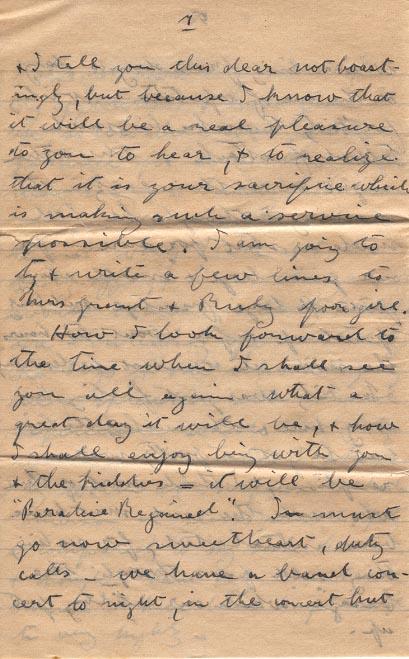 7
& I tell you this dear not boast-
ingly, but because I know that
it will be a real pleasure
to you to hear, & to realize
that it is your sacrifice which
is making such a service
possible. I am going to
try & write a few lines to
Mrs Grant & Ruby poor girl.
How I look forward to
the time when I shall see
you all again what a
great day it will be, & how
I shall enjoy being with you
& the kiddies = it will be
"Paradise Regained". I must
go now sweetheart, duty
calls - we have a band con-
cert to night, in the but